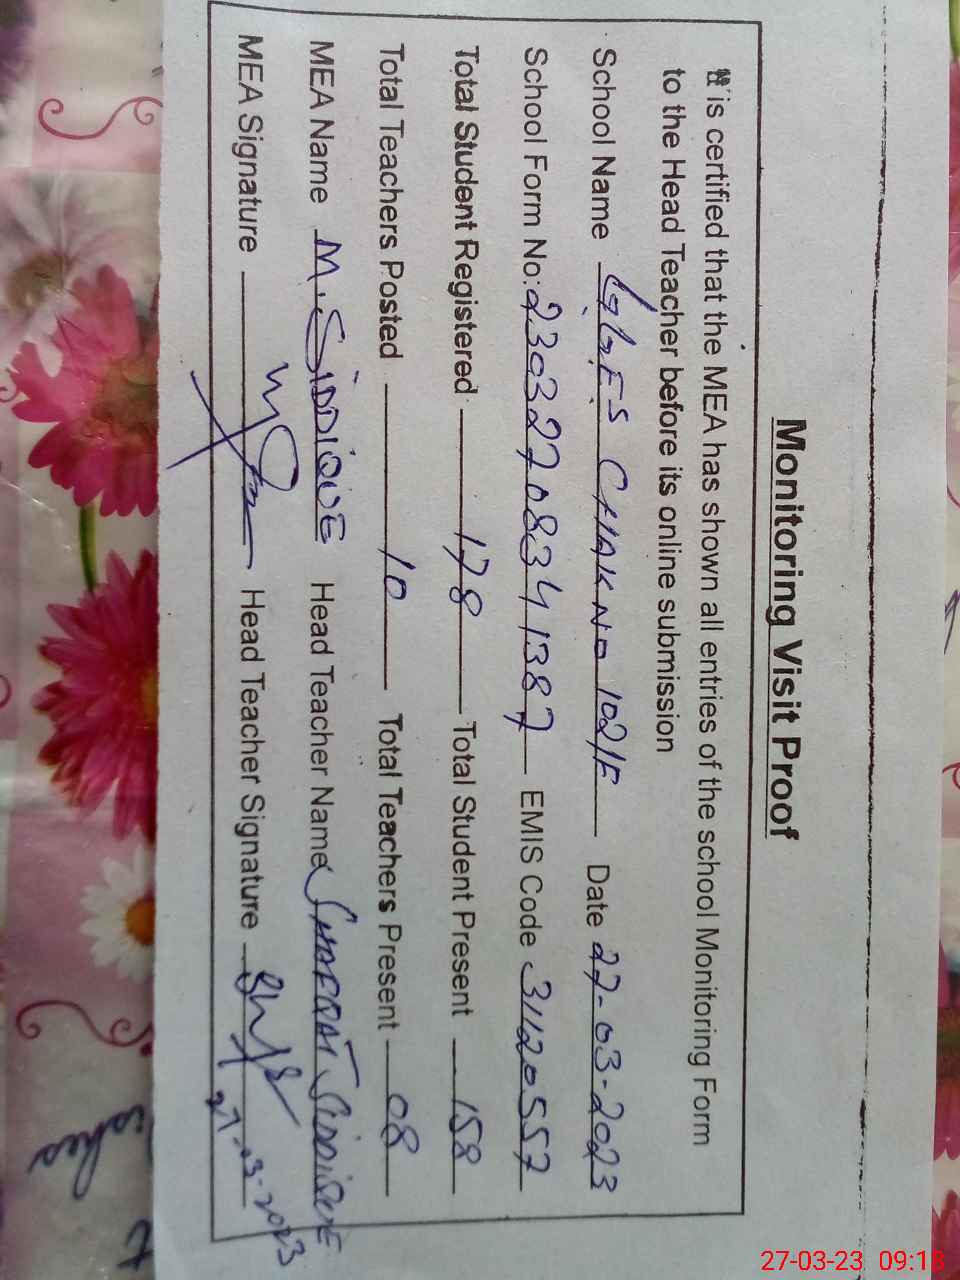 Monitoring Visit Proof
It is certified that the MEA has shown all entries of the school Monitoring Form
to the Head Teacher before its online submission
School Name GGES CHAK NO 102/F Date 27-03-2023
School Form No: 23032708341387 EMIS Code 31120557
Total Student Registered 178 Total Student Present 158
Total Teachers Posted 10 Total Teachers Present 08
MEA Name M. SIDDIQUE Head Teacher Name SHAFRAT SIDDIQUE
MEA Signature Head Teacher Signature
27-3-2023
27-03-23 09:18